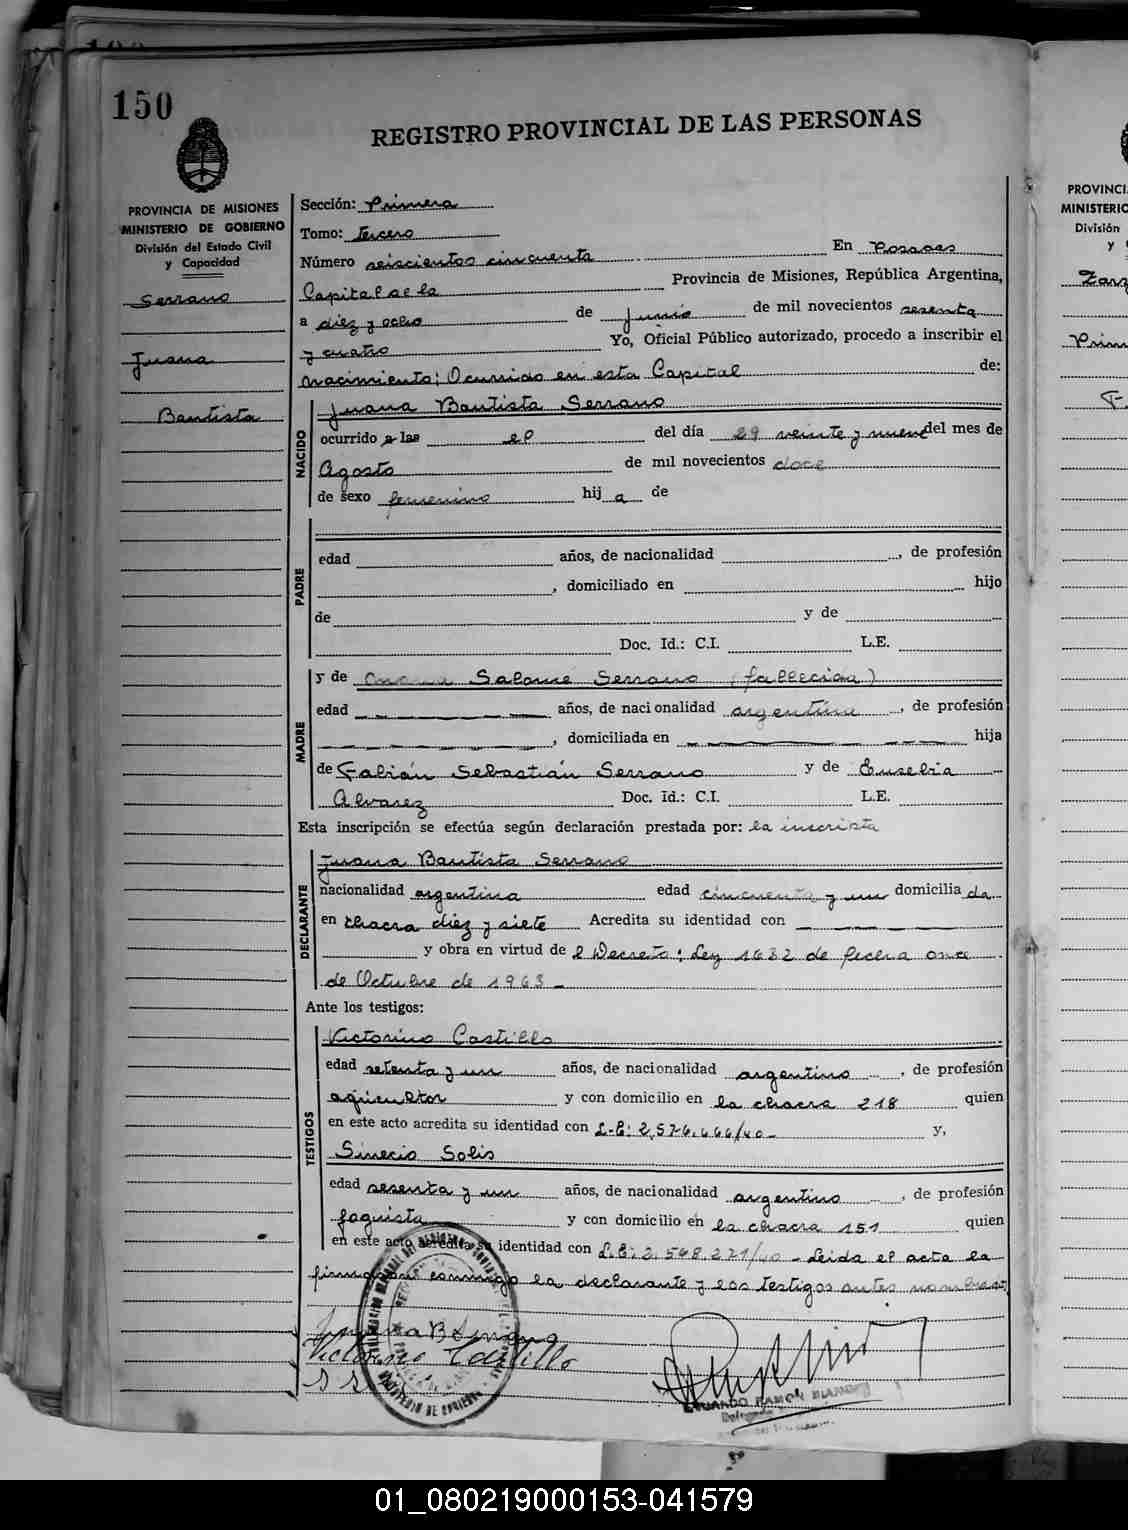 150
REGISTRO PROVINCIAL DE LAS PERSONAS
PROVINCIA DE MISIONES
MINISTERIO DE GOBIERNO
División del Estado Civil
y Capacidad
Serrano
Juana
Bautista
Sección: Primera
Tomo: tercero
Número seiscientos cincuenta En Posadas
Capital de la Provincia de Misiones, República Argentina,
a diez y ocho de junio de mil novecientos sesenta
y cuatro Yo, Oficial Público autorizado, procedo a inscribir el
nacimiento: Ocurrido en esta Capital de:
NACIDO
Juana Bautista Serrano
ocurrido a las el del día 29 veinte y nueve del mes de
Agosto de mil novecientos doce
de sexo femenino hij a de
PADRE
edad años, de nacionalidad , de profesión
, domiciliado en hijo
de y de
Doc. Id.: C.I. L.E.
MADRE
y de Salomé Serrano (fallecida)
edad años, de nacionalidad argentina , de profesión
, domiciliada en hija
de Fabián Sebastián Serrano y de Eusebia
Alvarez Doc. Id.: C.I. L.E.
Esta inscripción se efectúa según declaración prestada por: la inscripta
DECLARANTE
Juana Bautista Serrano
nacionalidad argentina edad cincuenta y un domicilia da
en chacra diez y siete Acredita su identidad con
y obra en virtud de l Decreto: Ley 1632 de fecha once
de Octubre de 1963 -
Ante los testigos:
TESTIGOS
Victorino Castillo
edad setenta y un años, de nacionalidad argentino , de profesión
agricultor y con domicilio en la chacra 218 quien
en este acto acredita su identidad con L.E: 2,576.666/40 - y,
Sinecio Solis
edad sesenta y un años, de nacionalidad argentino , de profesión
foguista y con domicilio en la chacra 151 quien
en este acto acredita su identidad con L.E: 2.548.271/40 - Leida el acta la
firmaron conmigo la declarante y los testigos antes nombrados
Juana B Serrano
Victorino Castillo
S S
EDUARDO RAMON BLANCO
PROVINCI
MINISTERIO
División
y
Zarz
Prim
F.
01_080219000153-041579